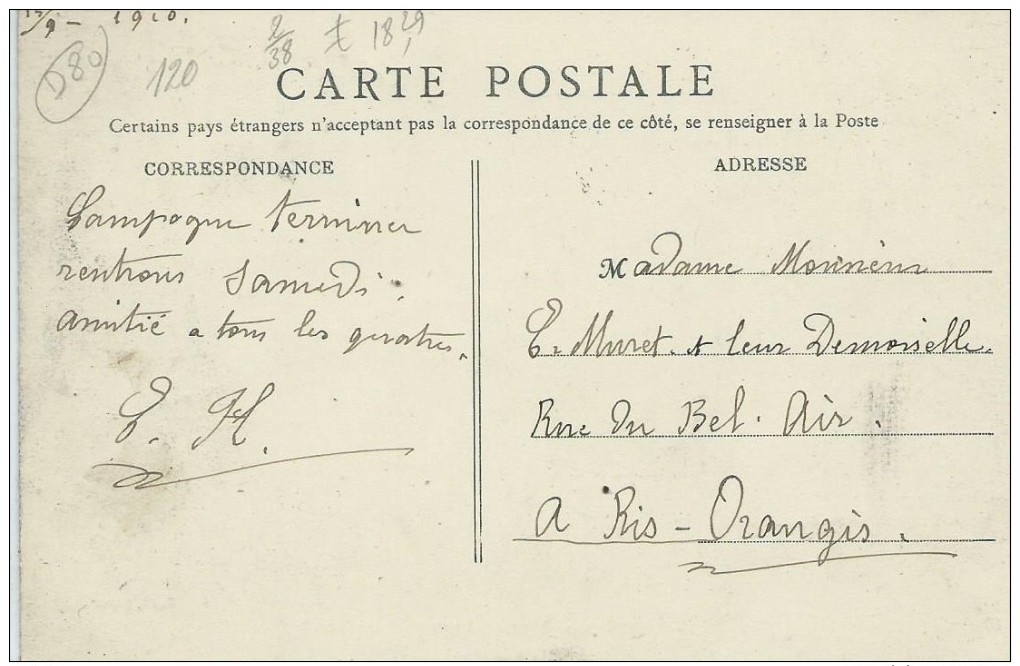 9 - 1910.
D80
120
2/38 t 18,29
CARTE POSTALE
Certains pays étrangers n'acceptant pas la correspondance de ce côté, se renseigner à la Poste
CORRESPONDANCE
Campagne terminer
rentrons Samedi.
amitié a tous les quatres.
E. H.
ADRESSE
Madame
E. Muret. et leur Demoiselle.
Rue du Bel. Air.
a Ris - Orangis.